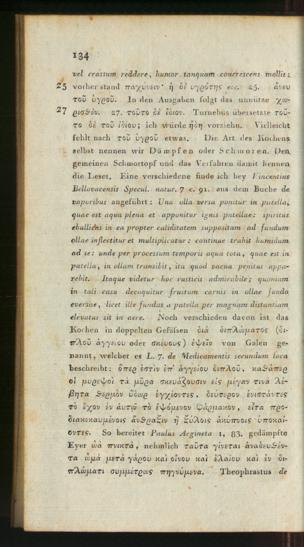 134
vel crassum reddere, humor tanquam concrescens mollit:
25 vorher stand παχύνειν· ἡ δὲ ὑγρότης etc. 25. ἄνευ
τοῦ ὑγροῦ. In den Ausgaben folgt das unnütze χω-
27 ρισθέν. 27. τοῦτο δὲ ἴδιον. Turnebus übersetzte τοῦ-
το δὲ τοῦ ἰδίου; ich würde ἤδη vorziehn. Vielleicht
fehlt nach τοῦ ὑγροῦ etwas. Die Art des Kochens
selbst nennen wir Dämpfen oder Schmoren. Den
gemeinen Schmortopf und das Verfahren damit kennen
die Leser. Eine verschiedene finde ich bey Vincentius
Bellovacensis Specul. natur. 7 c. 91. aus dem Buche de
vaporibus angeführt: Una olla versa ponitur in patella,
quae est aqua plena et apponitur ignis patellae: spiritus
ebulliens in ea propter caliditatem suppositam ad fundum
ollae inflectitur et multiplicatur: continue trahit humidum
ad se: unde per processum temporis aqua tota, quae est in
patella, in ollam transibit, ita quod vacua penitus appa-
rebit. Itaque videtur hoc rusticis admirabile; quoniam
in tali casu decoquitur frustum carnis in ollae fundo
eversae, licet ille fundus a patella per magnam distantiam
elevatus sit in aere. Noch verschieden davon ist das
Kochen in doppelten Gefäſsen διὰ διπλώματος (δι-
πλοῦ ἀγγείου oder σκεύους) ἑψεῖν von Galen ge-
nannt, welcher es L. 7. de Medicamentis secundum loca
beschreibt: ὅπερ ἐστὶν ἐπ' ἀγγείου διπλοῦ. καθάπερ
οἱ μυρεψοὶ τὰ μῦρα σκευάζουσιν εἰς μέγαν τινὰ λέ-
βητα θερμὸν ὕδωρ ἐγχέοντες. δεύτερον ἐνιστάντες
τὸ ἔχον ἐν αὑτῷ τὸ ἑψόμενον φάρμακον, εἶτα προ-
διακεκαυμένοις ἄνθραξιν ἢ ξύλοις ἀκάπνοις ὑποκαί-
οντες. So bereitet Paulus Aegineta 1, 83. gedämpfte
Eyer ὠὰ πνικτά, nehmlich ταῦτα γίνεται ἀναδευθέν-
τα ὠμὰ μετὰ γάρου καὶ οἴνου καὶ ἐλαίου καὶ ἐν δι-
πλώματι συμμέτρως πηγνύμενα. Theophrastus de